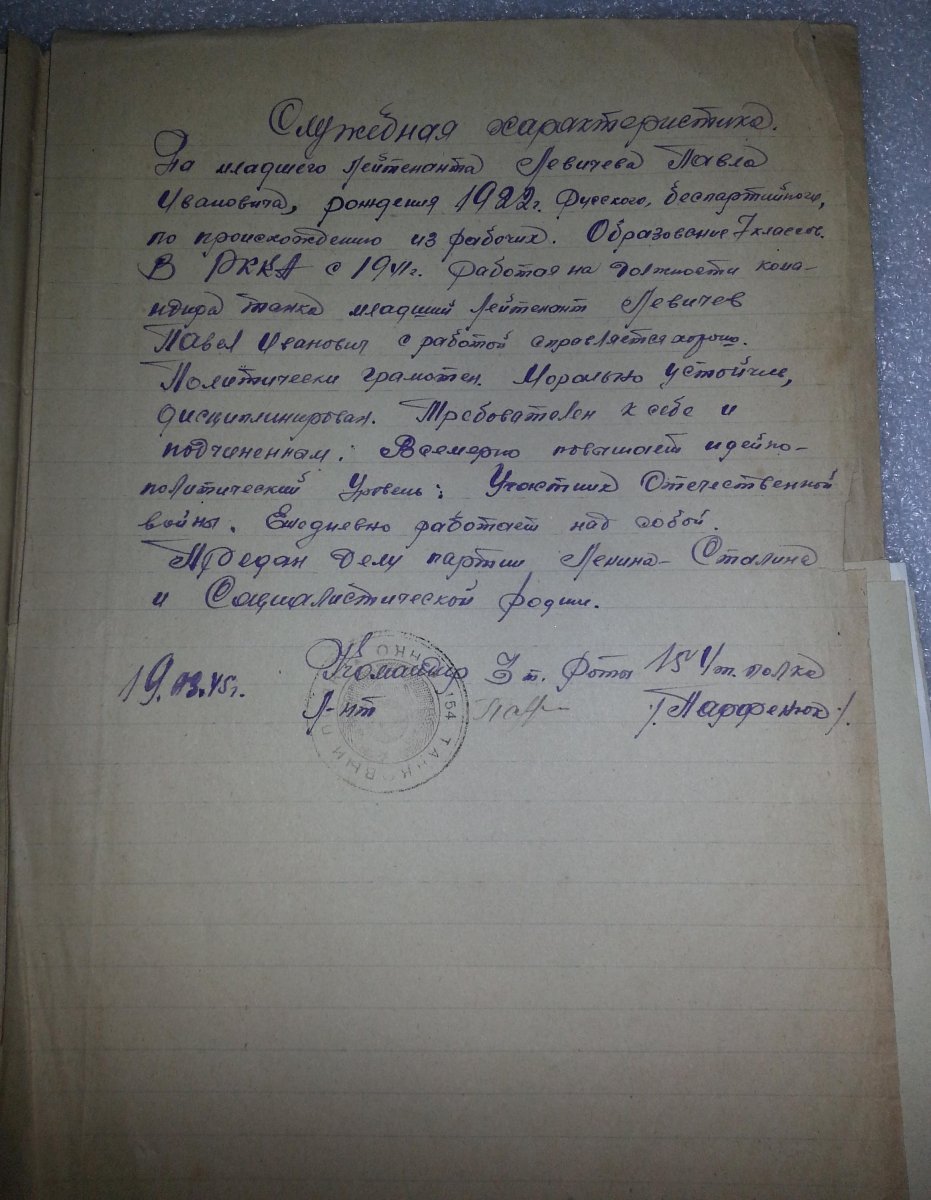 Служебная характеристика.
На младшего лейтенанта Левичева Павла
Ивановича, рождения 1922г. Русского, беспартийного,
по происхождению из рабочих. Образование 7 классов.
В РККА с 1941г. Работая на должности кома-
ндира танка младший лейтенант Левичев
Павел Иванович с работой справляется хорошо.
Политически грамотен. Морально устойчив,
дисциплинирован. Требователен к себе и
подчиненным. Всемерно повышает идейно-
политический уровень. Участник Отечественной
войны. Ежедневно работает над собой.
Предан делу партии Ленина-Сталина
и Социалистической родины.
Командир 3 т. роты 154 т. полка
19.03.45г.
Л-нт /Парфенюк/.
154 ТАНКОВЫЙ